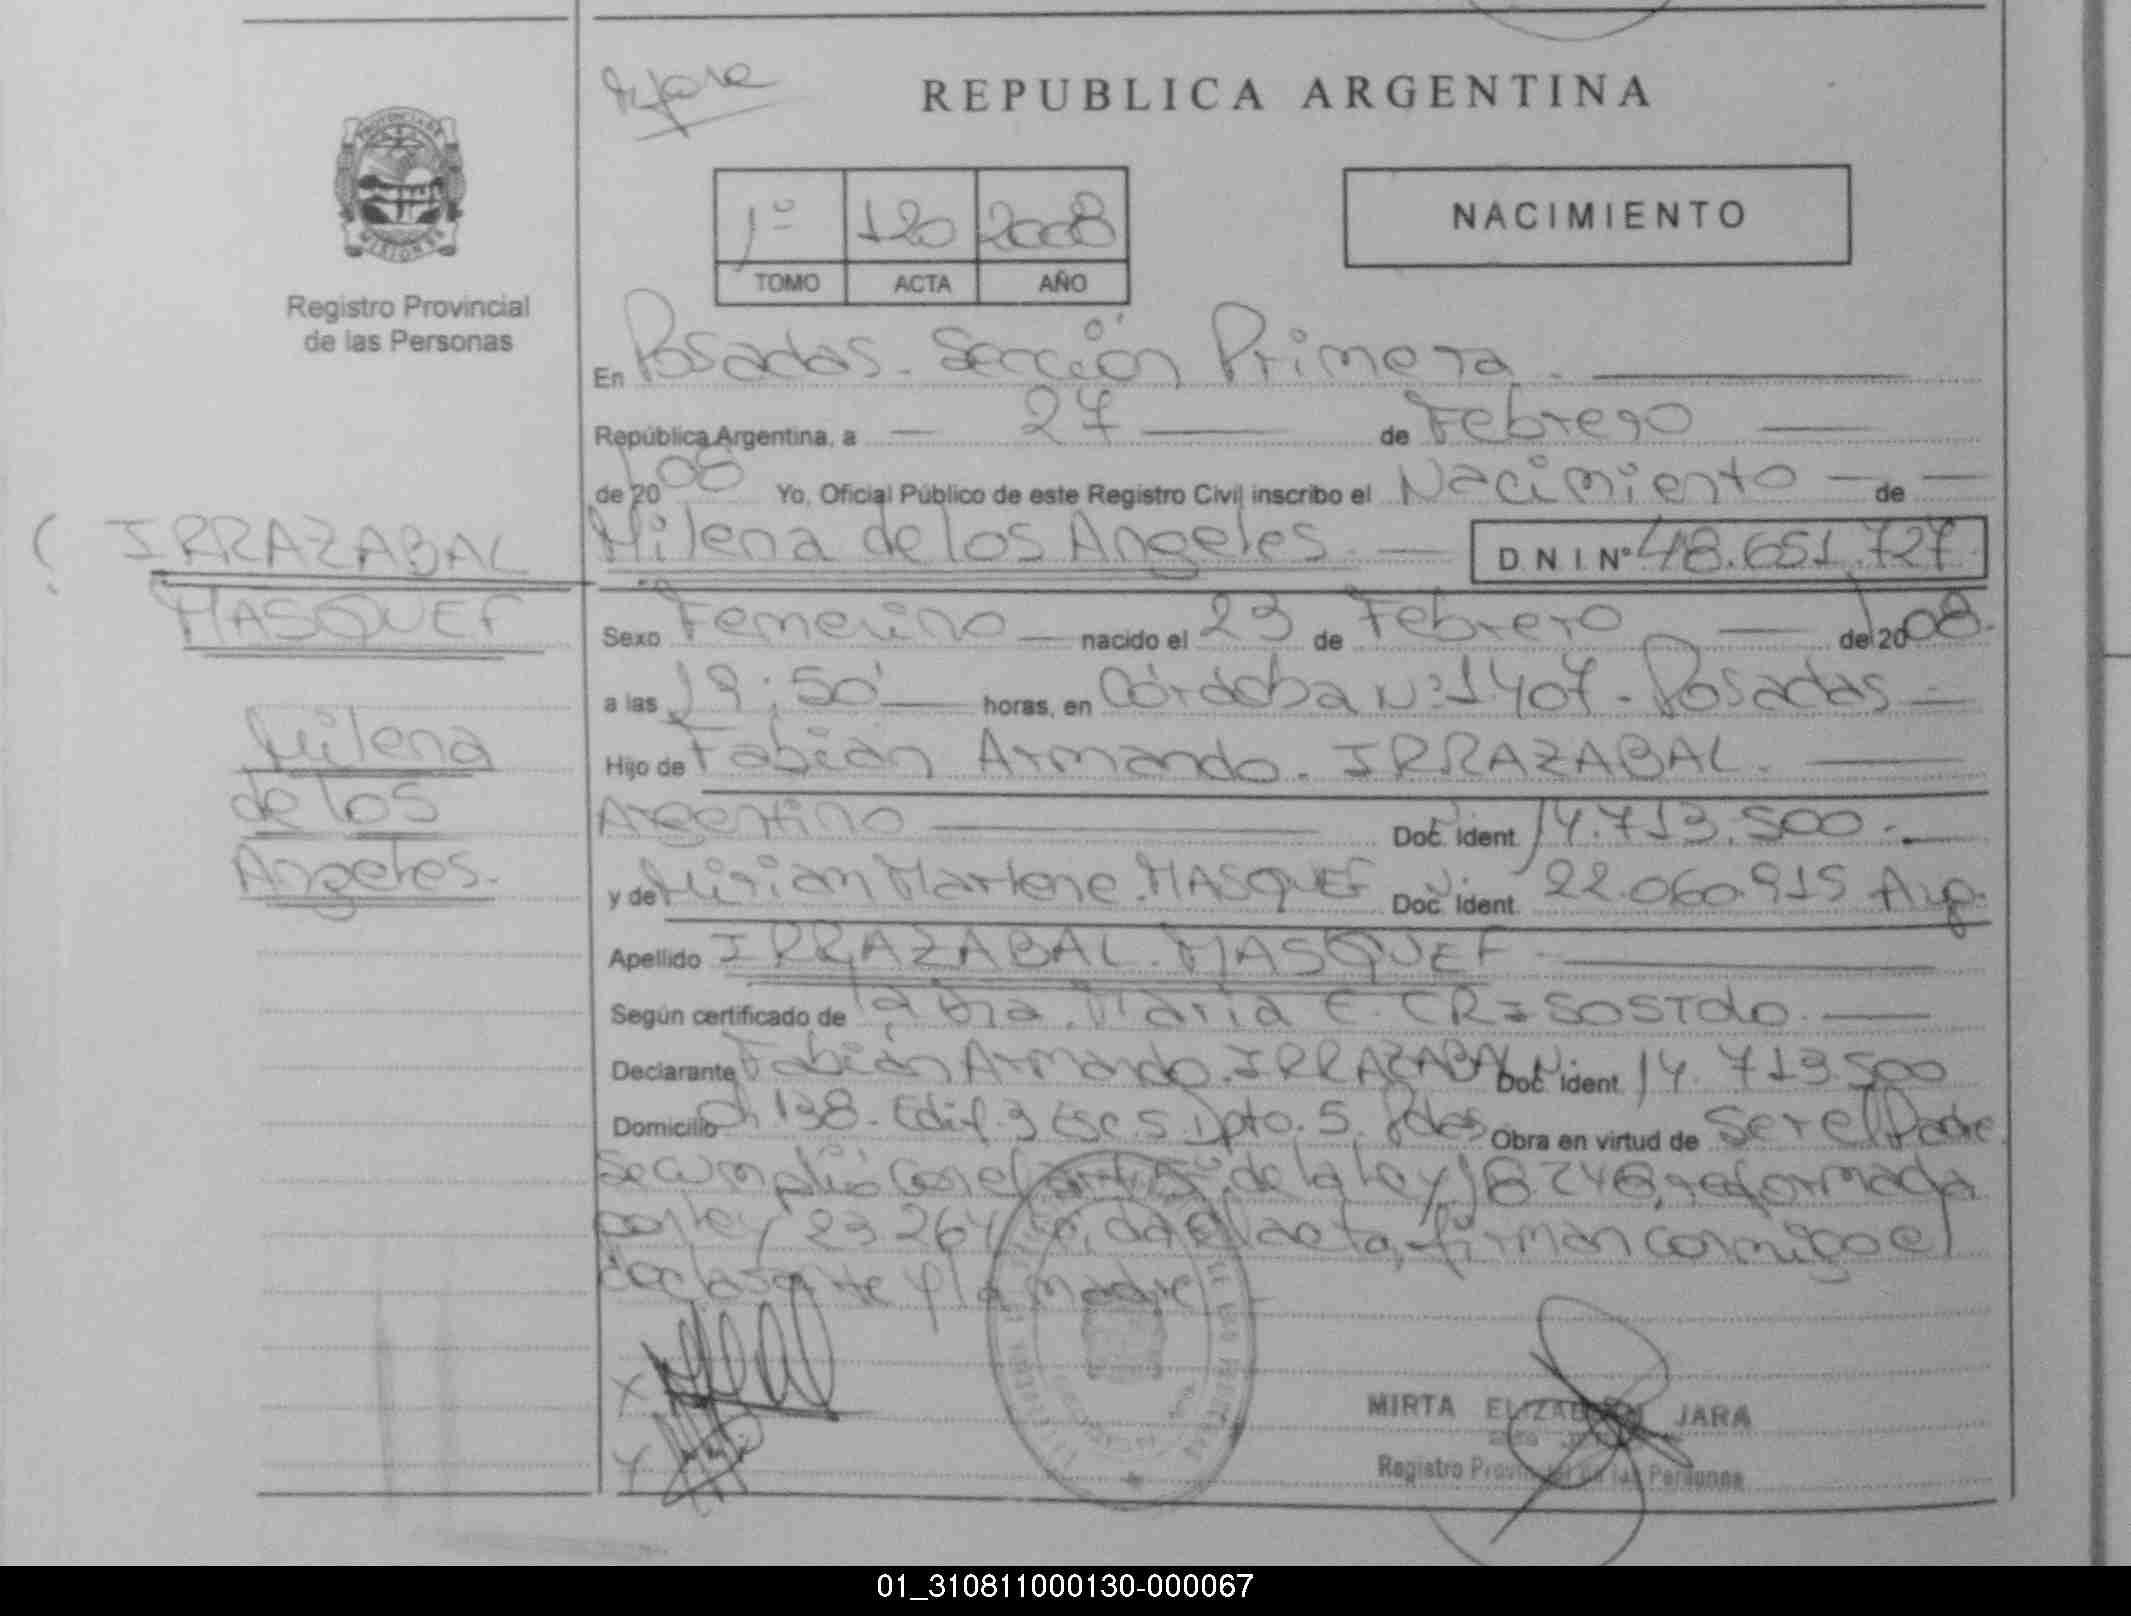 REPUBLICA ARGENTINA
PROVINCIA DE
MISIONES
Registro Provincial
de las Personas
1º 120 2008
TOMO ACTA AÑO
NACIMIENTO
En Posadas. Sección Primera.
República Argentina, a 27 de Febrero
de 2008 Yo, Oficial Público de este Registro Civil inscribo el Nacimiento de
Milena de los Angeles. D N I. Nº 48.651.727
Sexo Femenino nacido el 23 de Febrero de 2008.
a las 19:50' horas, en Córdoba Nº 1407 - Posadas
Hijo de Fabián Armando. IRRAZABAL.
Argentino Doc. Ident. 14.713.500.
y de Mirian Marlene. MASQUEF Doc. Ident. 22.060.915 Arg.
Apellido IRRAZABAL. MASQUEF
Según certificado de la Dra. María E. CRISOSTdo.
Declarante Fabián Armando. IRRAZABAL Doc. Ident. 14.713.500
Domicilio Ch 138. Edif. 3 Esc 5 Dpto. 5. Pdas Obra en virtud de Ser el Padre.
Se cumplió con el de la ley 18.248, reformada
por ley 23264 el acta, firman conmigo el
declarante y la madre
IRRAZABAL
MASQUEF
Milena
de los
Angeles.
MIRTA ELIZABETH JARA
Registro Provincial de las Personas
01_310811000130-000067